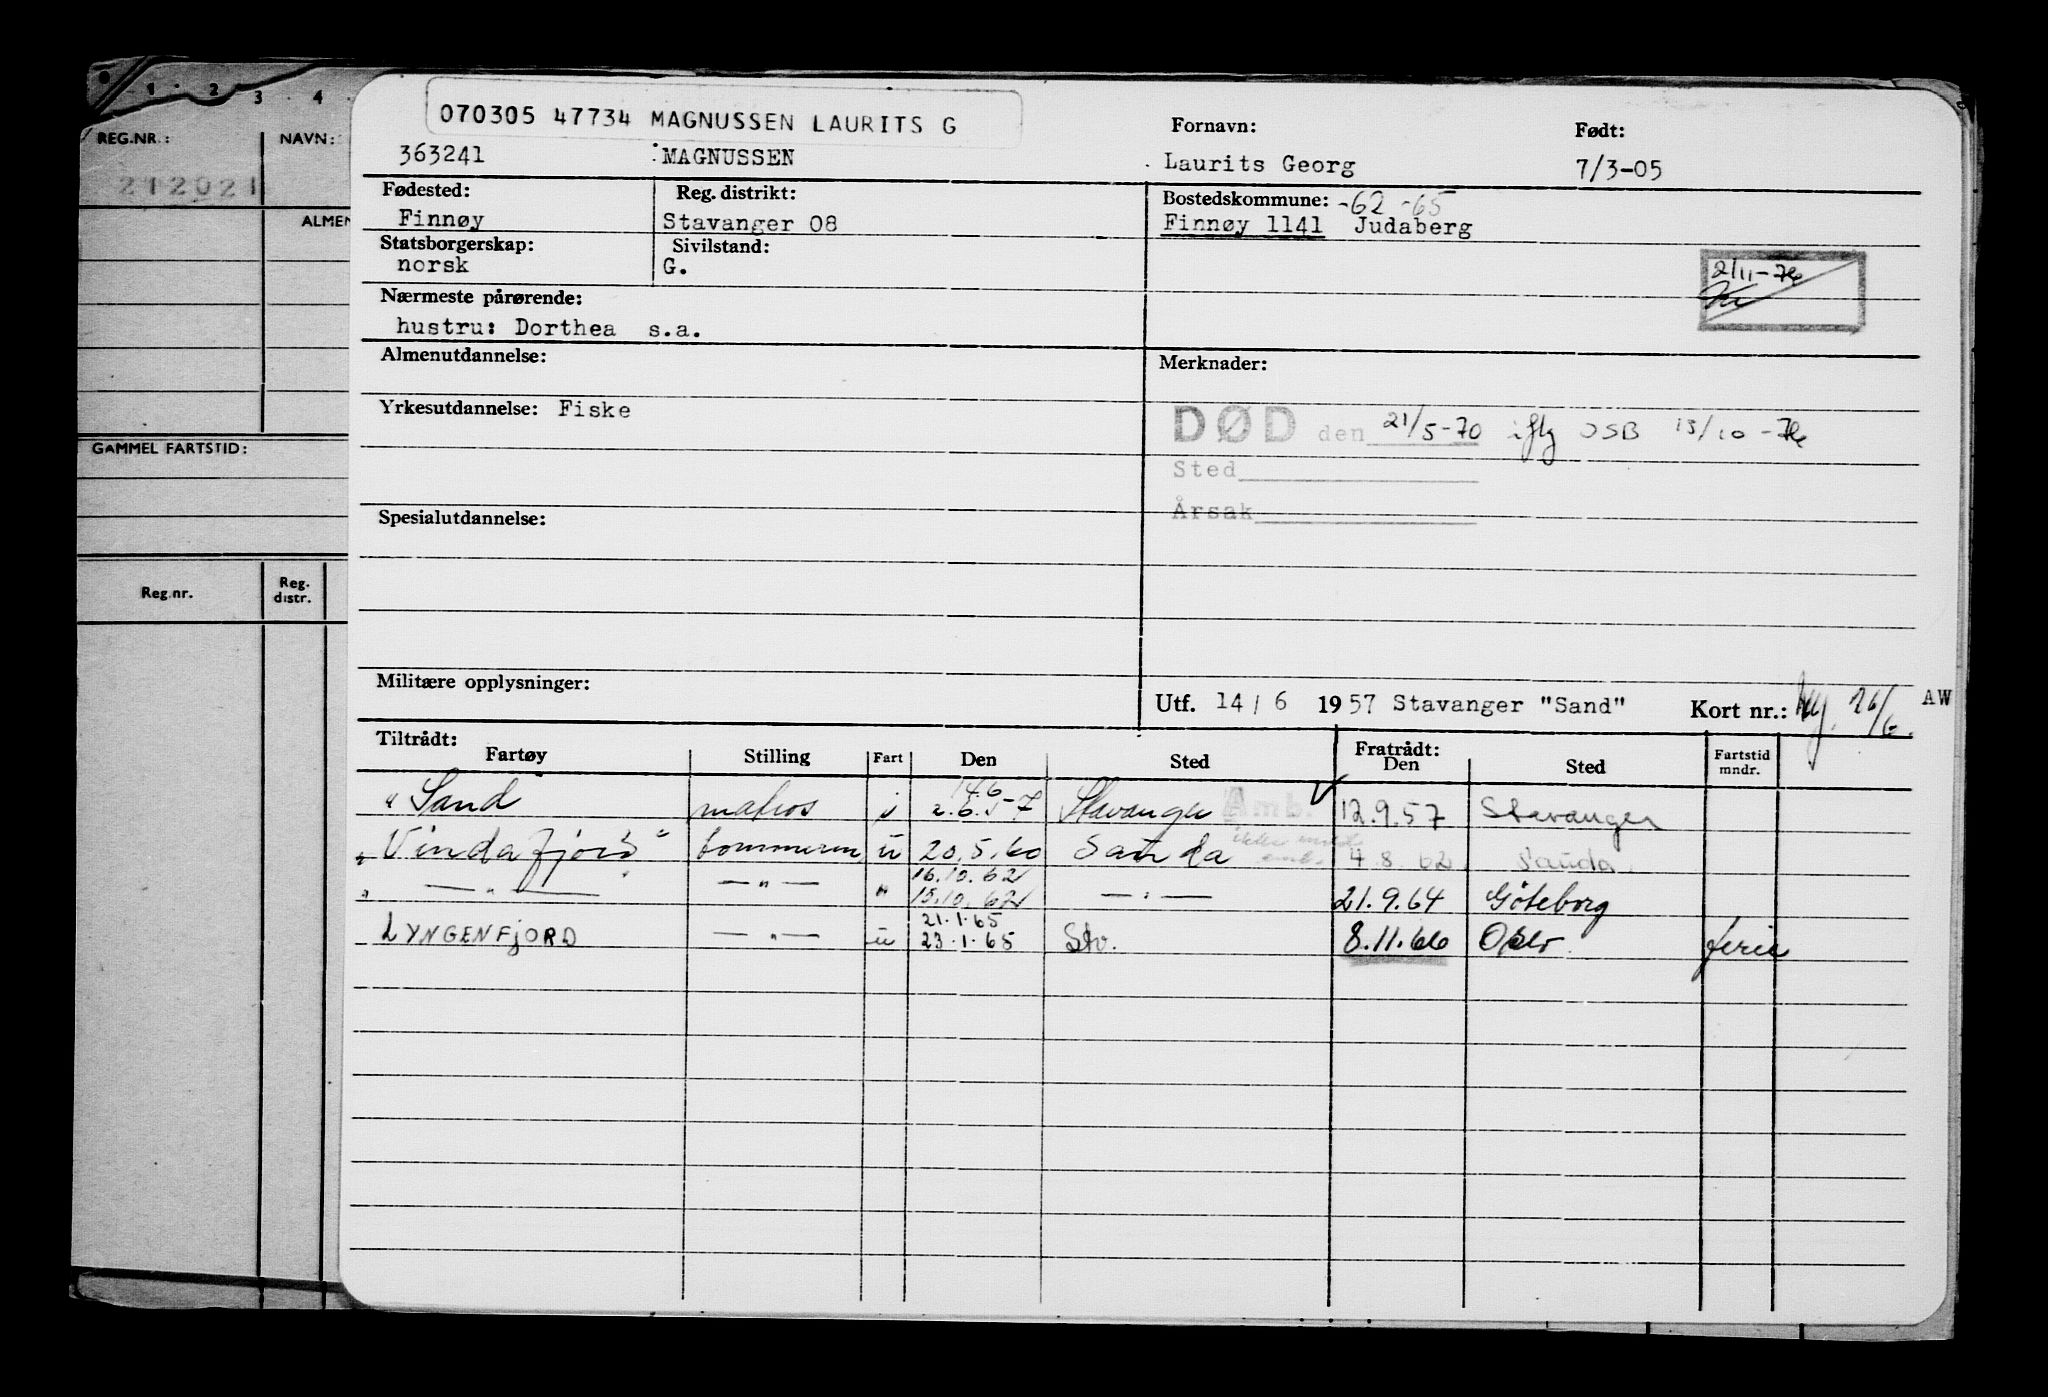 1 · 2 3 · 4 ·
REG.NR.: NAVN:
212021
ALMEN
GAMMEL FARTSTID:
Reg.nr. Reg. distr.
070305 47734 MAGNUSSEN LAURITS G
Fornavn: Født:
363241 MAGNUSSEN Laurits Georg 7/3-05
Fødested: Reg. distrikt: Bostedskommune: -62 -65
Finnøy Stavanger 08 Finnøy 1141 Judaberg
Statsborgerskap: Sivilstand:
norsk G.
2/11-76
Nærmeste pårørende:
hustru: Dorthea s.a.
Almenutdannelse: Merknader:
Yrkesutdannelse: Fiske
DØD den 21/5-70 iflg OSB 13/10-76
Sted
Årsak
Spesialutdannelse:
Militære opplysninger:
Utf. 14/6 1957 Stavanger "Sand" Kort nr.: 26/6. AW
Tiltrådt: Fratrådt:
Fartøy Stilling Fart Den Sted Den Sted Fartstid mndr.
14.6
"Sand matros i 2.6.57 Stavanger Amb. 12.9.57 Stavanger
"Vindafjord" tømmerm. u 20.5.60 Sauda ikke med amb. 4.8.62 Sauda
16.10.62
" — " — — " — " 15.10.62 — " — 21.9.64 Göteborg
21.1.65
LYNGENFJORD — " — u 23.1.65 Stv. 8.11.66 Oslo ferie